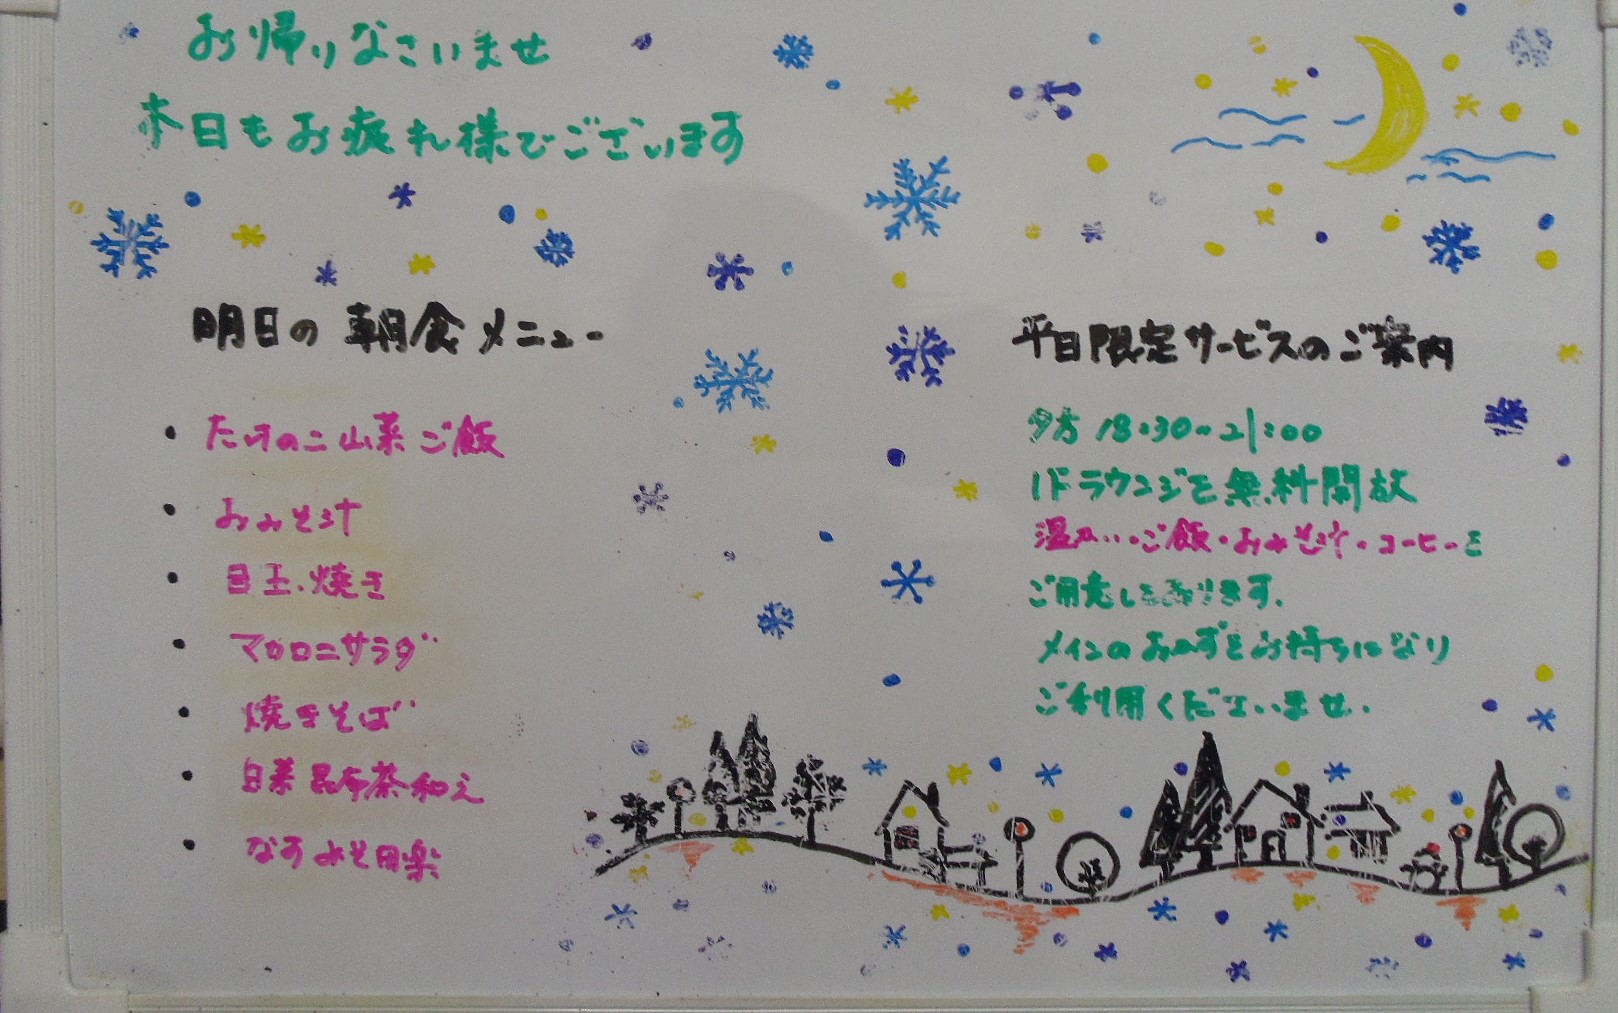 お帰りなさいませ
本日もお疲れ様でございます
明日の朝食メニュー
・たけのこ山菜ご飯
・おみそ汁
・目玉焼き
・マカロニサラダ
・焼きそば
・白菜昆布茶和え
・なすみそ田楽
平日限定サービスのご案内
夕方 18:30~21:00
1Fラウンジを無料開放
温かいご飯・おみそ汁・コーヒーを
ご用意しております。
メインのおかずをお持ちになり
ご利用くださいませ。